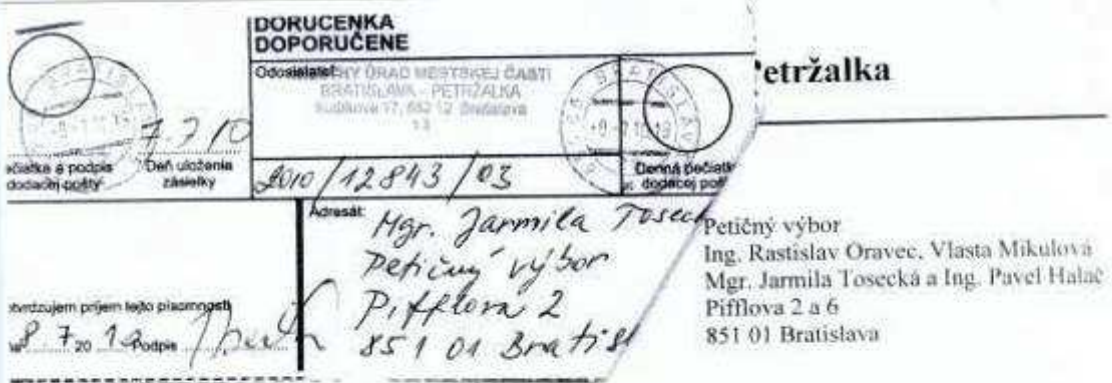 DORUČENKA
DOPORUČENE
Odosielateľ:
ÚRAD MESTSKEJ ČASTI
BRATISLAVA - PETRŽALKA
17, 852 12 Bratislava
13
7.7.10
pečiatka a podpis
dodacej pošty
Deň uloženia
zásielky
2010/12843/03
Denná pečiatka
dodacej pošty
Adresát:
Mgr. Jarmila Tosec
Petičný výbor
Pifflova 2
851 01 Bratisl
otvrdzujem príjem tejto písomnosti
8.7.20 10 Podpis
etržalka
Petičný výbor
Ing. Rastislav Oravec, Vlasta Mikulová
Mgr. Jarmila Tosecká a Ing. Pavel Halač
Pifflova 2 a 6
851 01 Bratislava